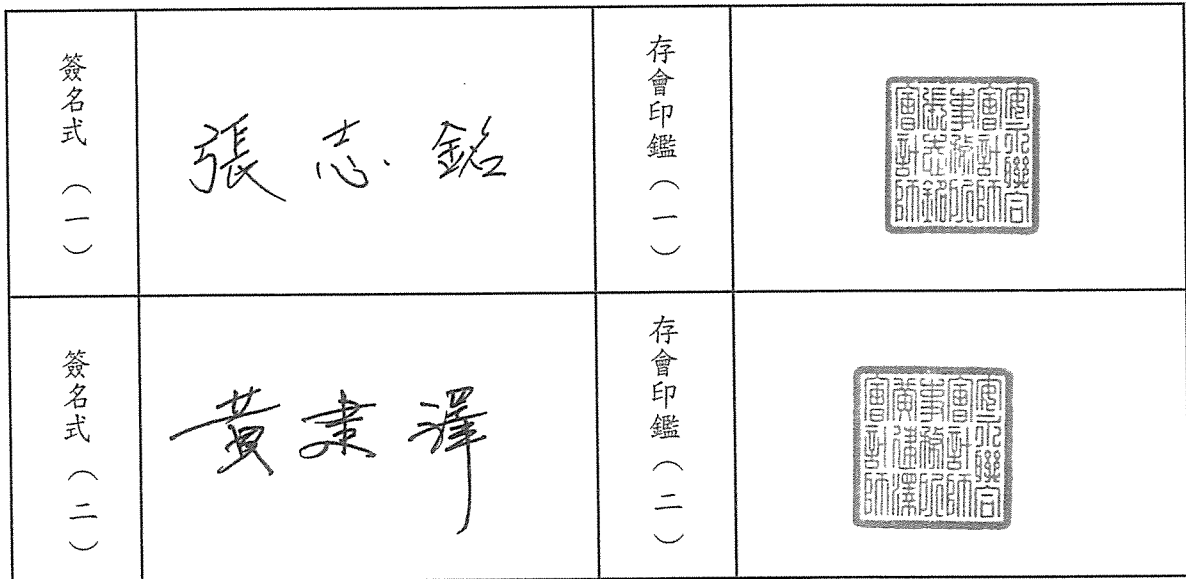 簽名式（一）
張志銘
存會印鑑（一）
安永聯合
會計師
事務所
張志銘
會計師
簽名式（二）
黃建澤
存會印鑑（二）
安永聯合
會計師
事務所
黃建澤
會計師